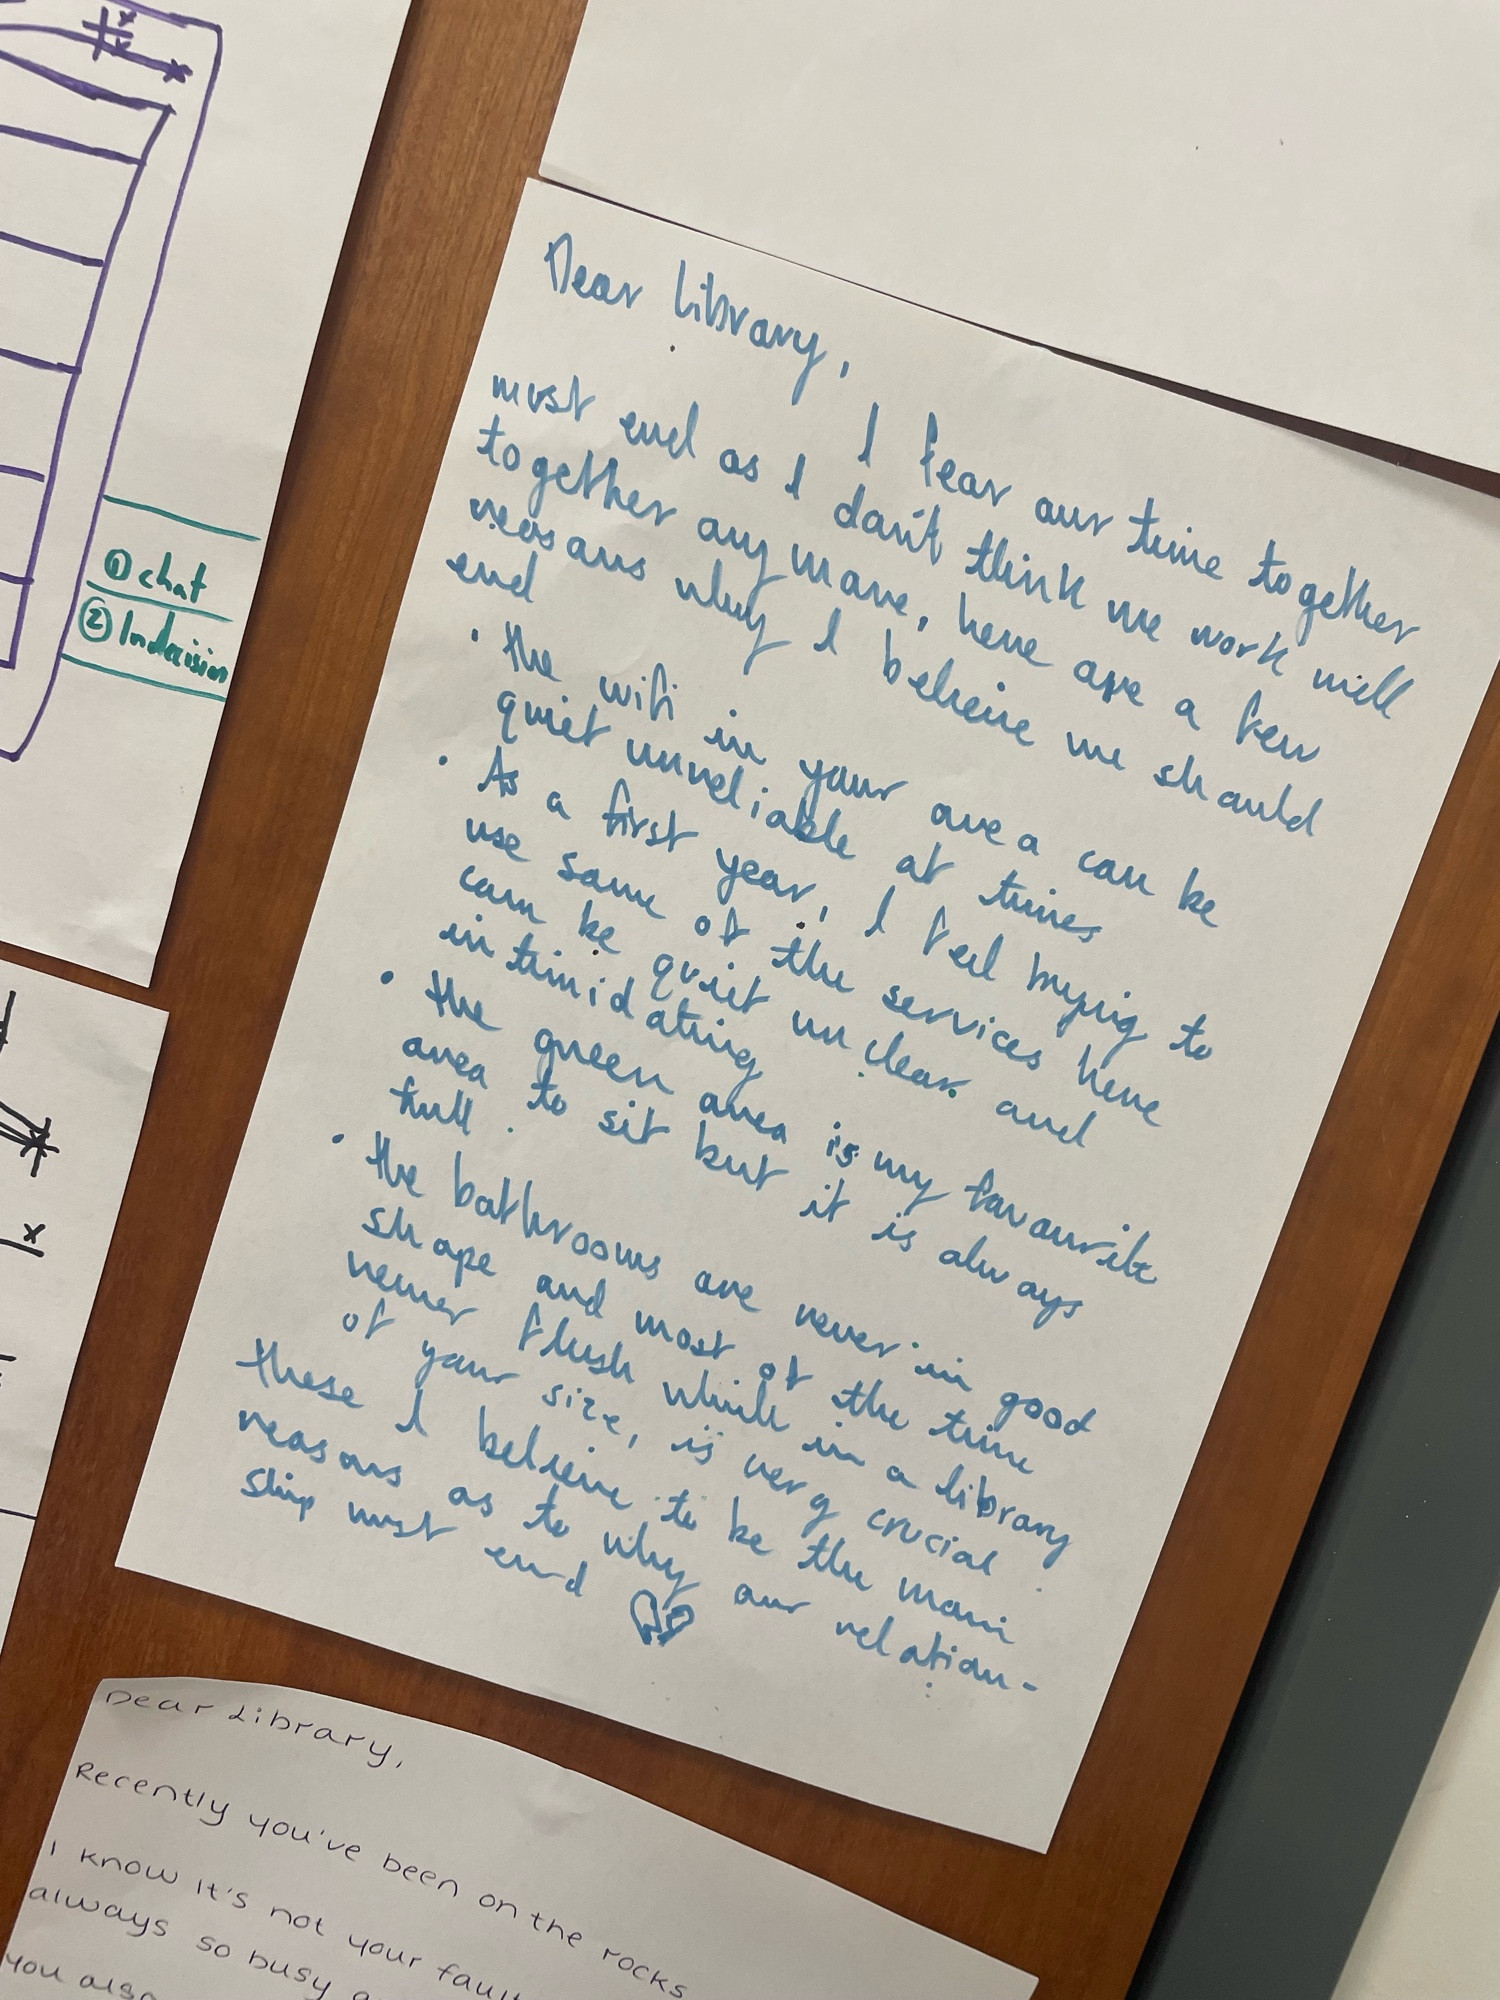 Dear Library,
I fear our time together
must end as I don't think we work well
together anymore, here are a few
reasons why I believe we should
end
· the wifi in your area can be
quiet unreliable at times
· As a first year, I feel trying to
use some of the services here
can be quiet unclear and
intimidating
· the green area is my favourite
area to sit but it is always
full.
· the bathrooms are never in good
shape and most of the time
never flush which in a library
of your size, is very crucial
these I believe to be the main
reasons as to why our relation-
ship must end
① chat
② Indecision
x
Dear Library,
Recently you've been on the rocks
I know it's not your fault
always so busy
you also